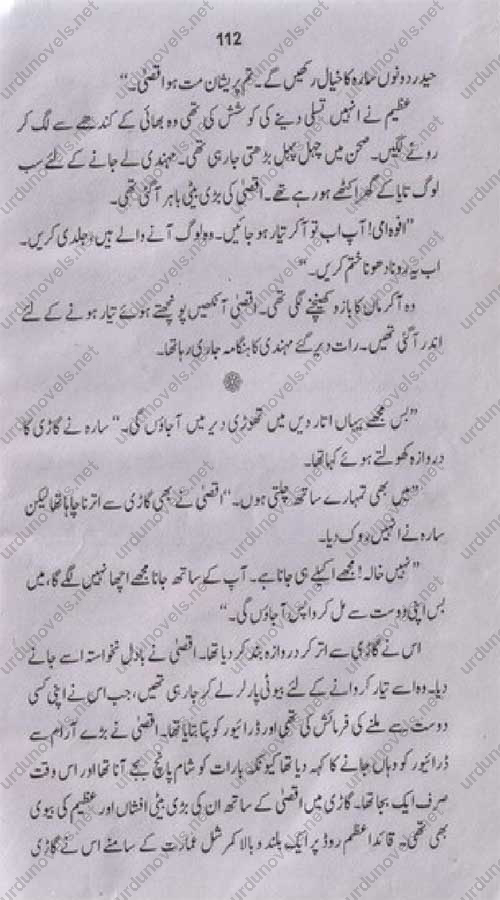 112
حیدر دونوں سارہ کا خیال رکھیں گے۔ تم پریشان مت ہو اقصیٰ۔“
عظیم نے انہیں تسلی دینے کی کوشش کی تھی وہ بھائی کے کندھے سے لگ کر
رونے لگیں۔ صحن میں چہل پہل بڑھتی جا رہی تھی۔ مہندی لے جانے کے لئے سب
لوگ تایا کے گھر اکٹھے ہو رہے تھے۔ اقصیٰ کی بڑی بیٹی باہر آ گئی تھی۔
”افوہ امی! آپ اب تو آ کر تیار ہو جائیں۔ وہ لوگ آنے والے ہیں، جلدی کریں۔
اب یہ رونا دھونا ختم کریں۔“
وہ آ کر ماں کا بازو کھینچنے لگی تھی۔ اقصیٰ آنکھیں پونچھتے ہوئے تیار ہونے کے لئے
اندر آ گئی تھیں۔ رات دیر گئے مہندی کا ہنگامہ جاری رہا تھا۔
”بس مجھے یہاں اتار دیں میں تھوڑی دیر میں آ جاؤں گی۔“ سارہ نے گاڑی کا
دروازہ کھولتے ہوئے کہا تھا۔
”میں بھی تمہارے ساتھ چلتی ہوں۔“ اقصیٰ نے بھی گاڑی سے اترنا چاہا تھا لیکن
سارہ نے انہیں روک دیا۔
”نہیں خالہ! مجھے اکیلے ہی جانا ہے۔ آپ کے ساتھ جانا مجھے اچھا نہیں لگے گا، میں
بس اپنی دوست سے مل کر واپس آ جاؤں گی۔“
اس نے گاڑی سے اتر کر دروازہ بند کر دیا تھا۔ اقصیٰ نے بادل نخواستہ اسے جانے
دیا۔ وہ اسے تیار کروانے کے لئے بیوٹی پارلر لے کر جا رہی تھیں، جب اس نے اپنی کسی
دوست سے ملنے کی فرمائش کی تھی اور ڈرائیور کو پتا بتایا تھا۔ اقصیٰ نے بڑے آرام سے
ڈرائیور کو وہاں جانے کا کہہ دیا تھا کیونکہ بارات کو شام پانچ بجے آنا تھا اور اس وقت
صرف ایک بجا تھا۔ گاڑی میں اقصیٰ کے ساتھ ان کی بڑی بیٹی افشاں اور عظیم کی بیوی
بھی تھی۔ قائداعظم روڈ پر ایک بلند و بالا کمرشل عمارت کے سامنے اس نے گاڑی
urdunovels.net